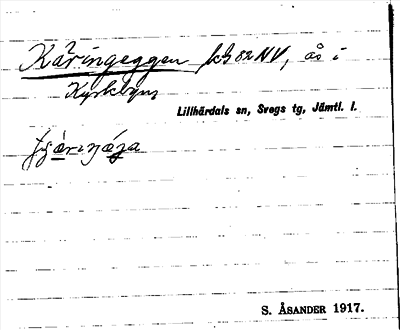 Käringeggen kbg 82 NV, ås i
Kyrkbyns
Lillhärdals sn, Svegs tg, Jämtl. l.
S. ÅSANDER 1917.